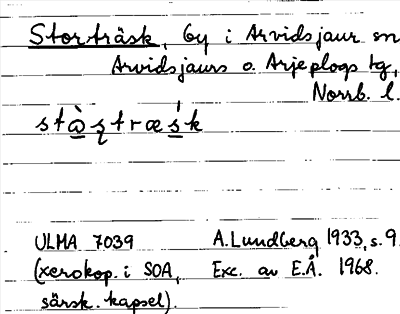 Storträsk, by i Arvidsjaur sn
Arvidsjaurs o. Arjeplogs tg,
Norrb. l.
stὰʂtræśk
ULMA 7039 A. Lundberg 1933, s. 9
(xerokop. i SOA, Exc. av E.Å. 1968.
särsk. kapsel).